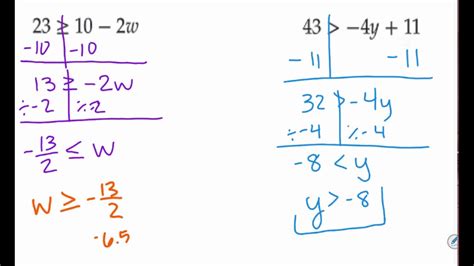 23 ≥ 10 − 2w
-10 -10
13 ≥ -2w
÷-2 ÷-2
-13/2 ≤ w
w ≥ -13/2
-6.5
43 > −4y + 11
-11 -11
32 > -4y
÷-4 ÷-4
-8 < y
y > -8